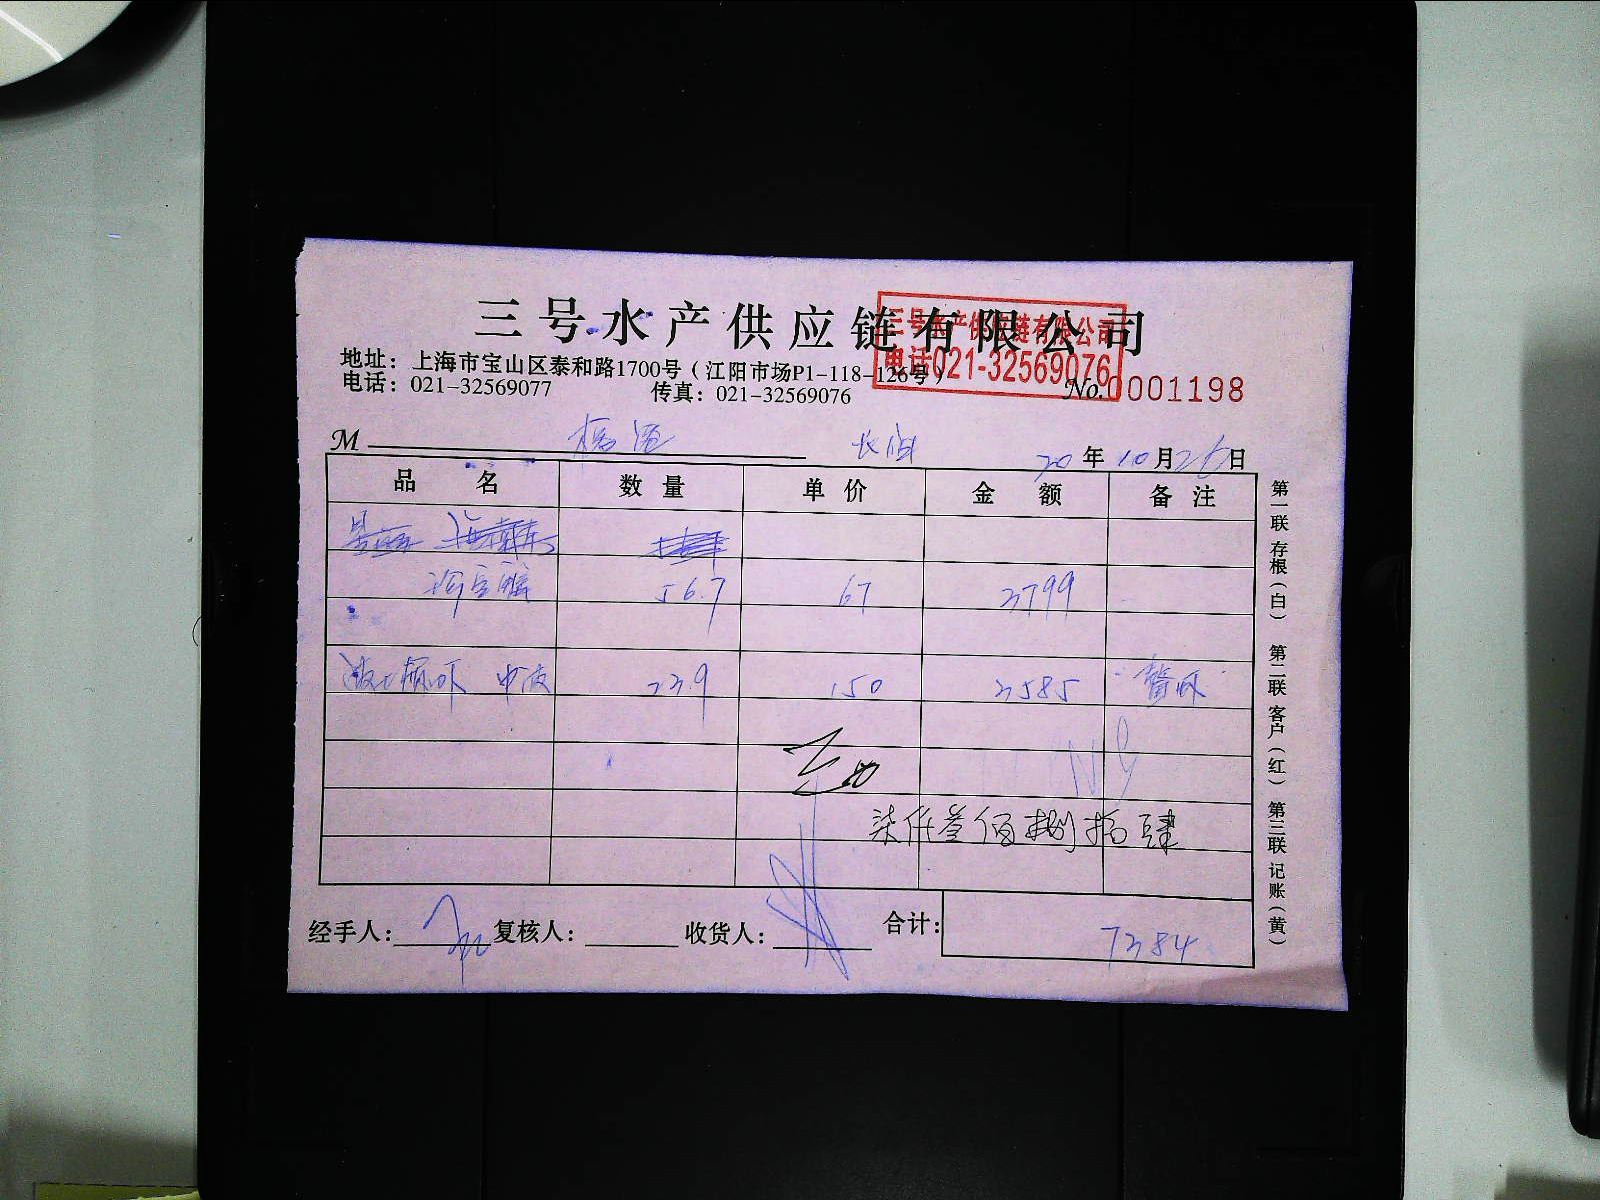 三号水产供应链有限公司
三号水产供应链有限公司
电话021-32569076
地址：上海市宝山区泰和路1700号（江阳市场P1-118-126号）
电话：021-32569077 传真：021-32569076
No.0001198
M 20年10月26日
品名 数量 单价 金额 备注
56.7 67 3799
23.9 150 3585
柒仟叁佰捌拾肆
经手人： 复核人： 收货人： 合计： 7384
第一联 存根（白） 第二联 客户（红） 第三联 记账（黄）